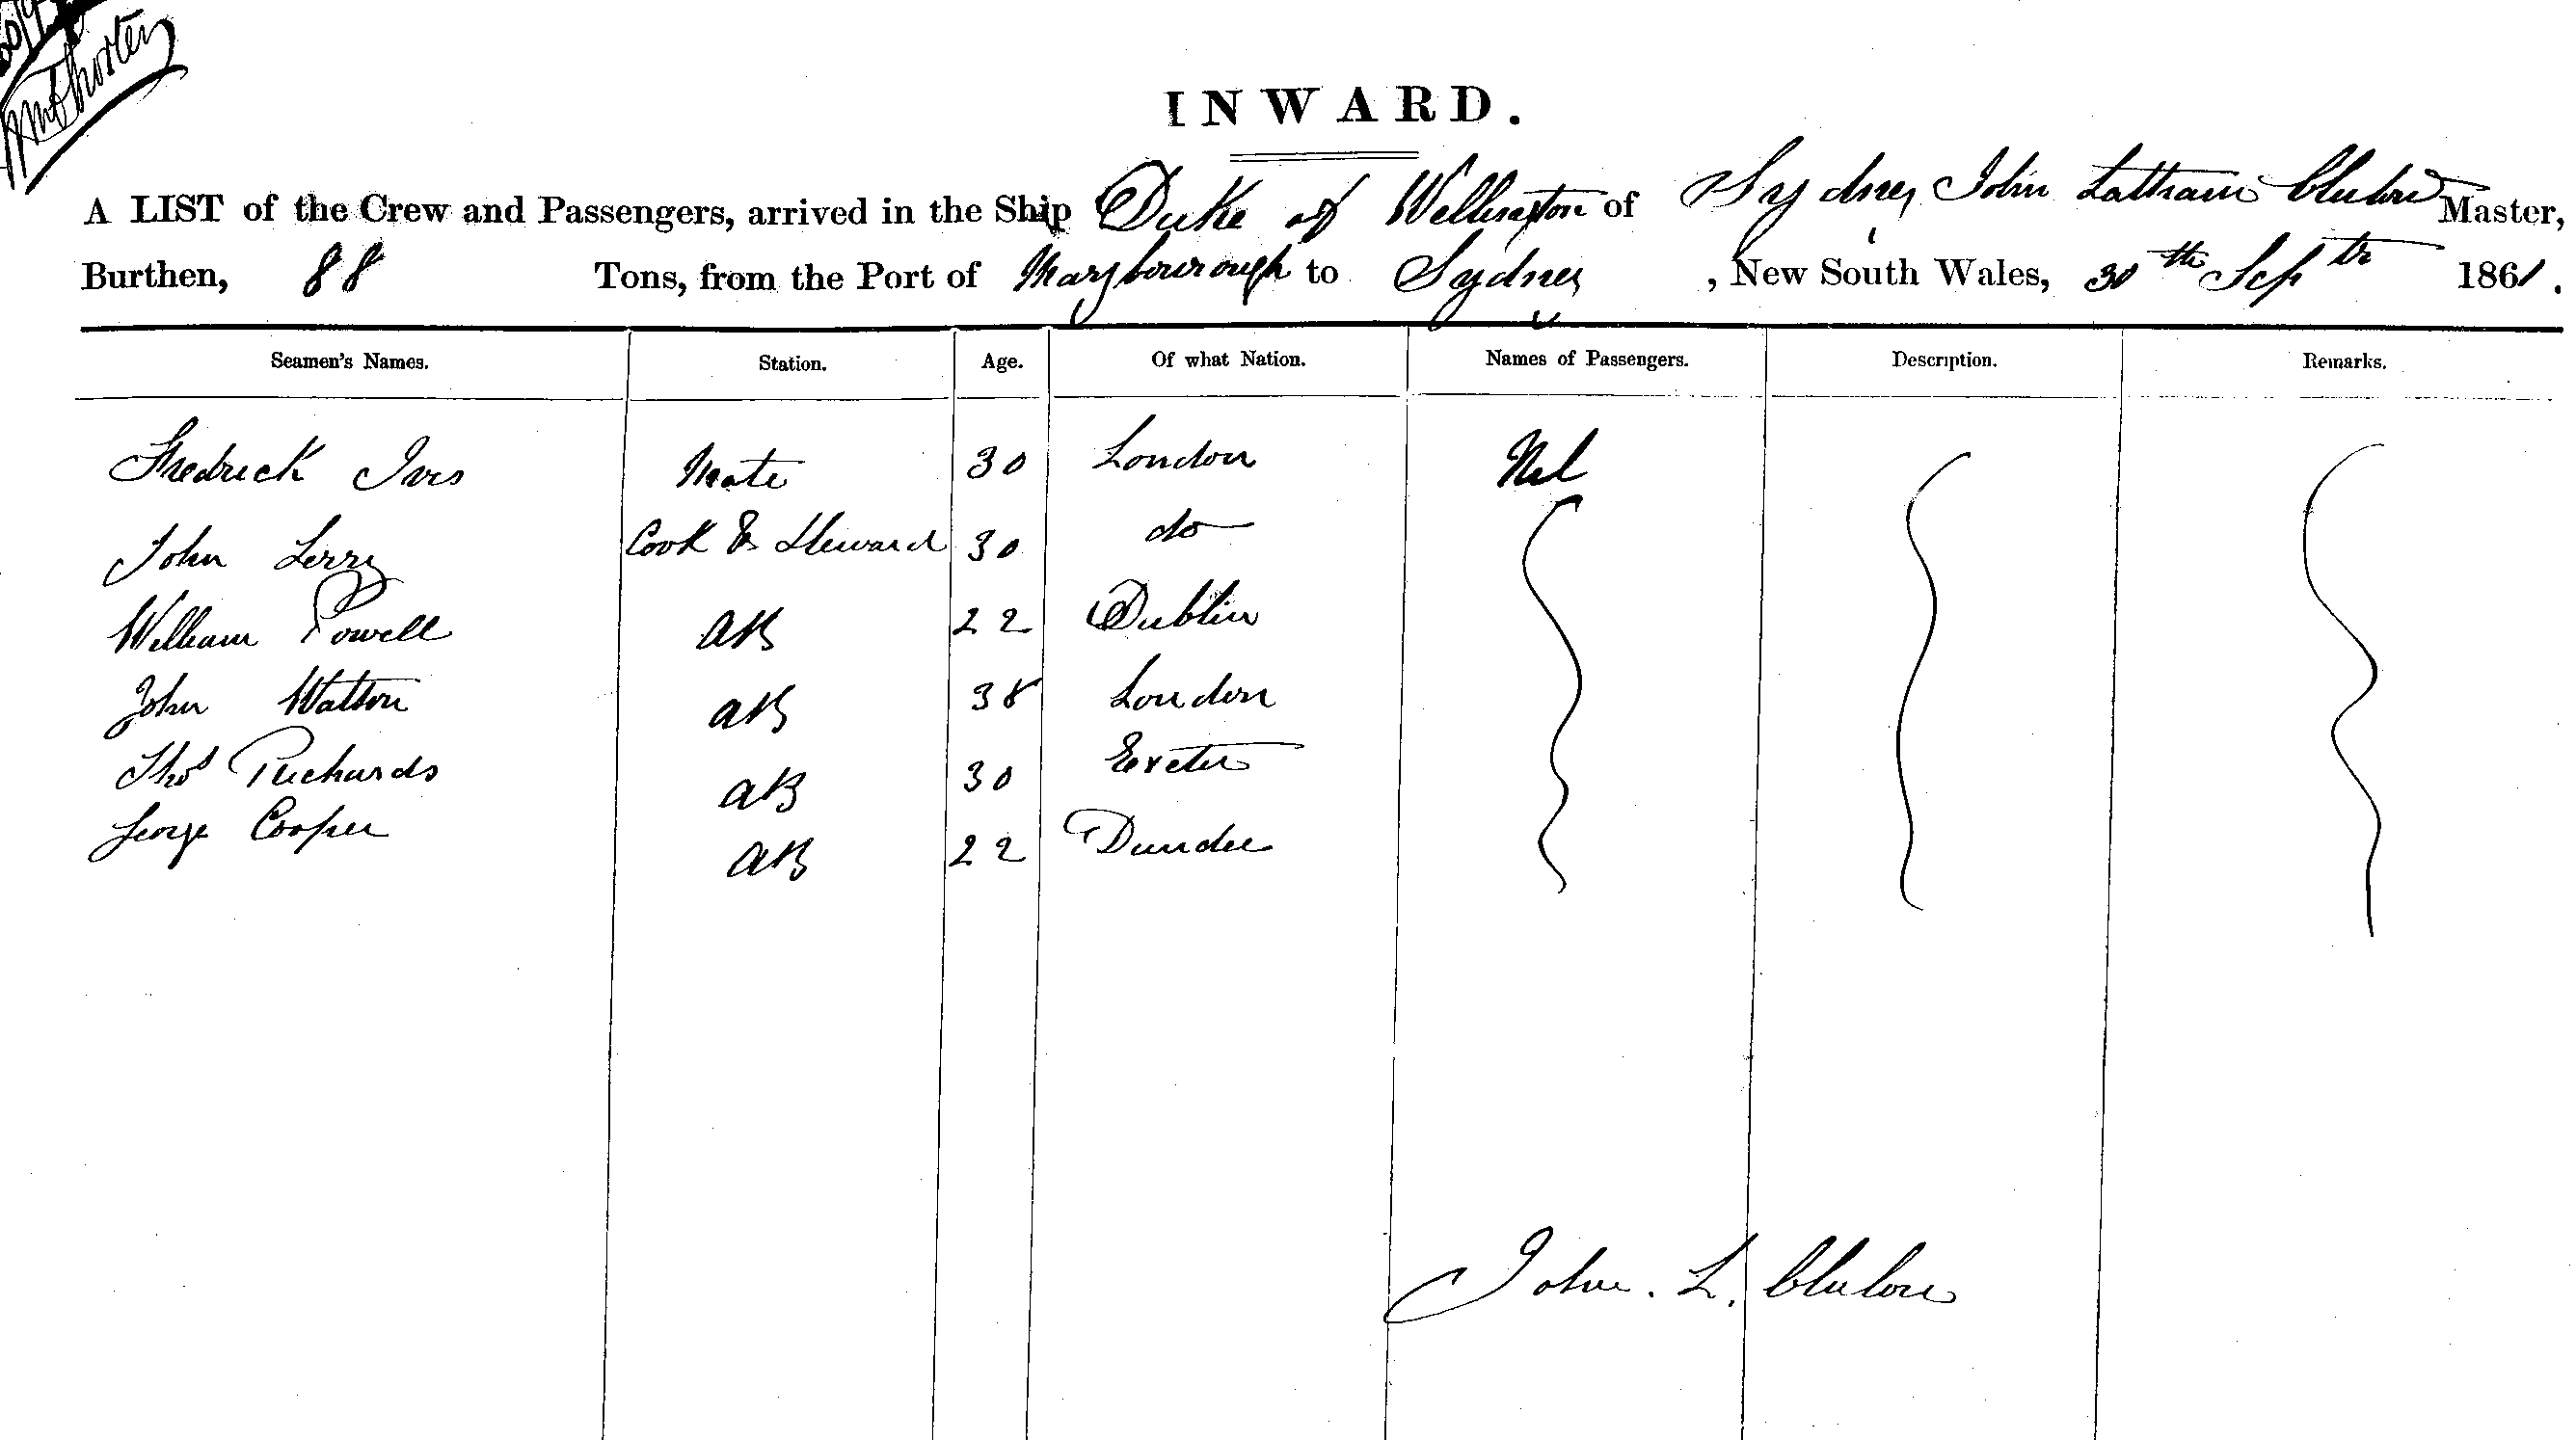 INWARD.
A LIST of the Crew and Passengers, arrived in the Ship Duke of Wellington of Sydney John Latham Clulow Master,
Burthen, 88 Tons, from the Port of Marybourough to Sydney, New South Wales, 30th Septr 1861.
Seamen's Names. Station. Age. Of what Nation. Names of Passengers. Description. Remarks.
Fredrick Ivis Mate 30 London Nil
John Lerry Cook & Steward 30 do
William Powell AB 22 Dublin
John Watson AB 38 London
Thos Richards AB 30 Exeter
George Cooper AB 22 Dundee
John. L. Clulow